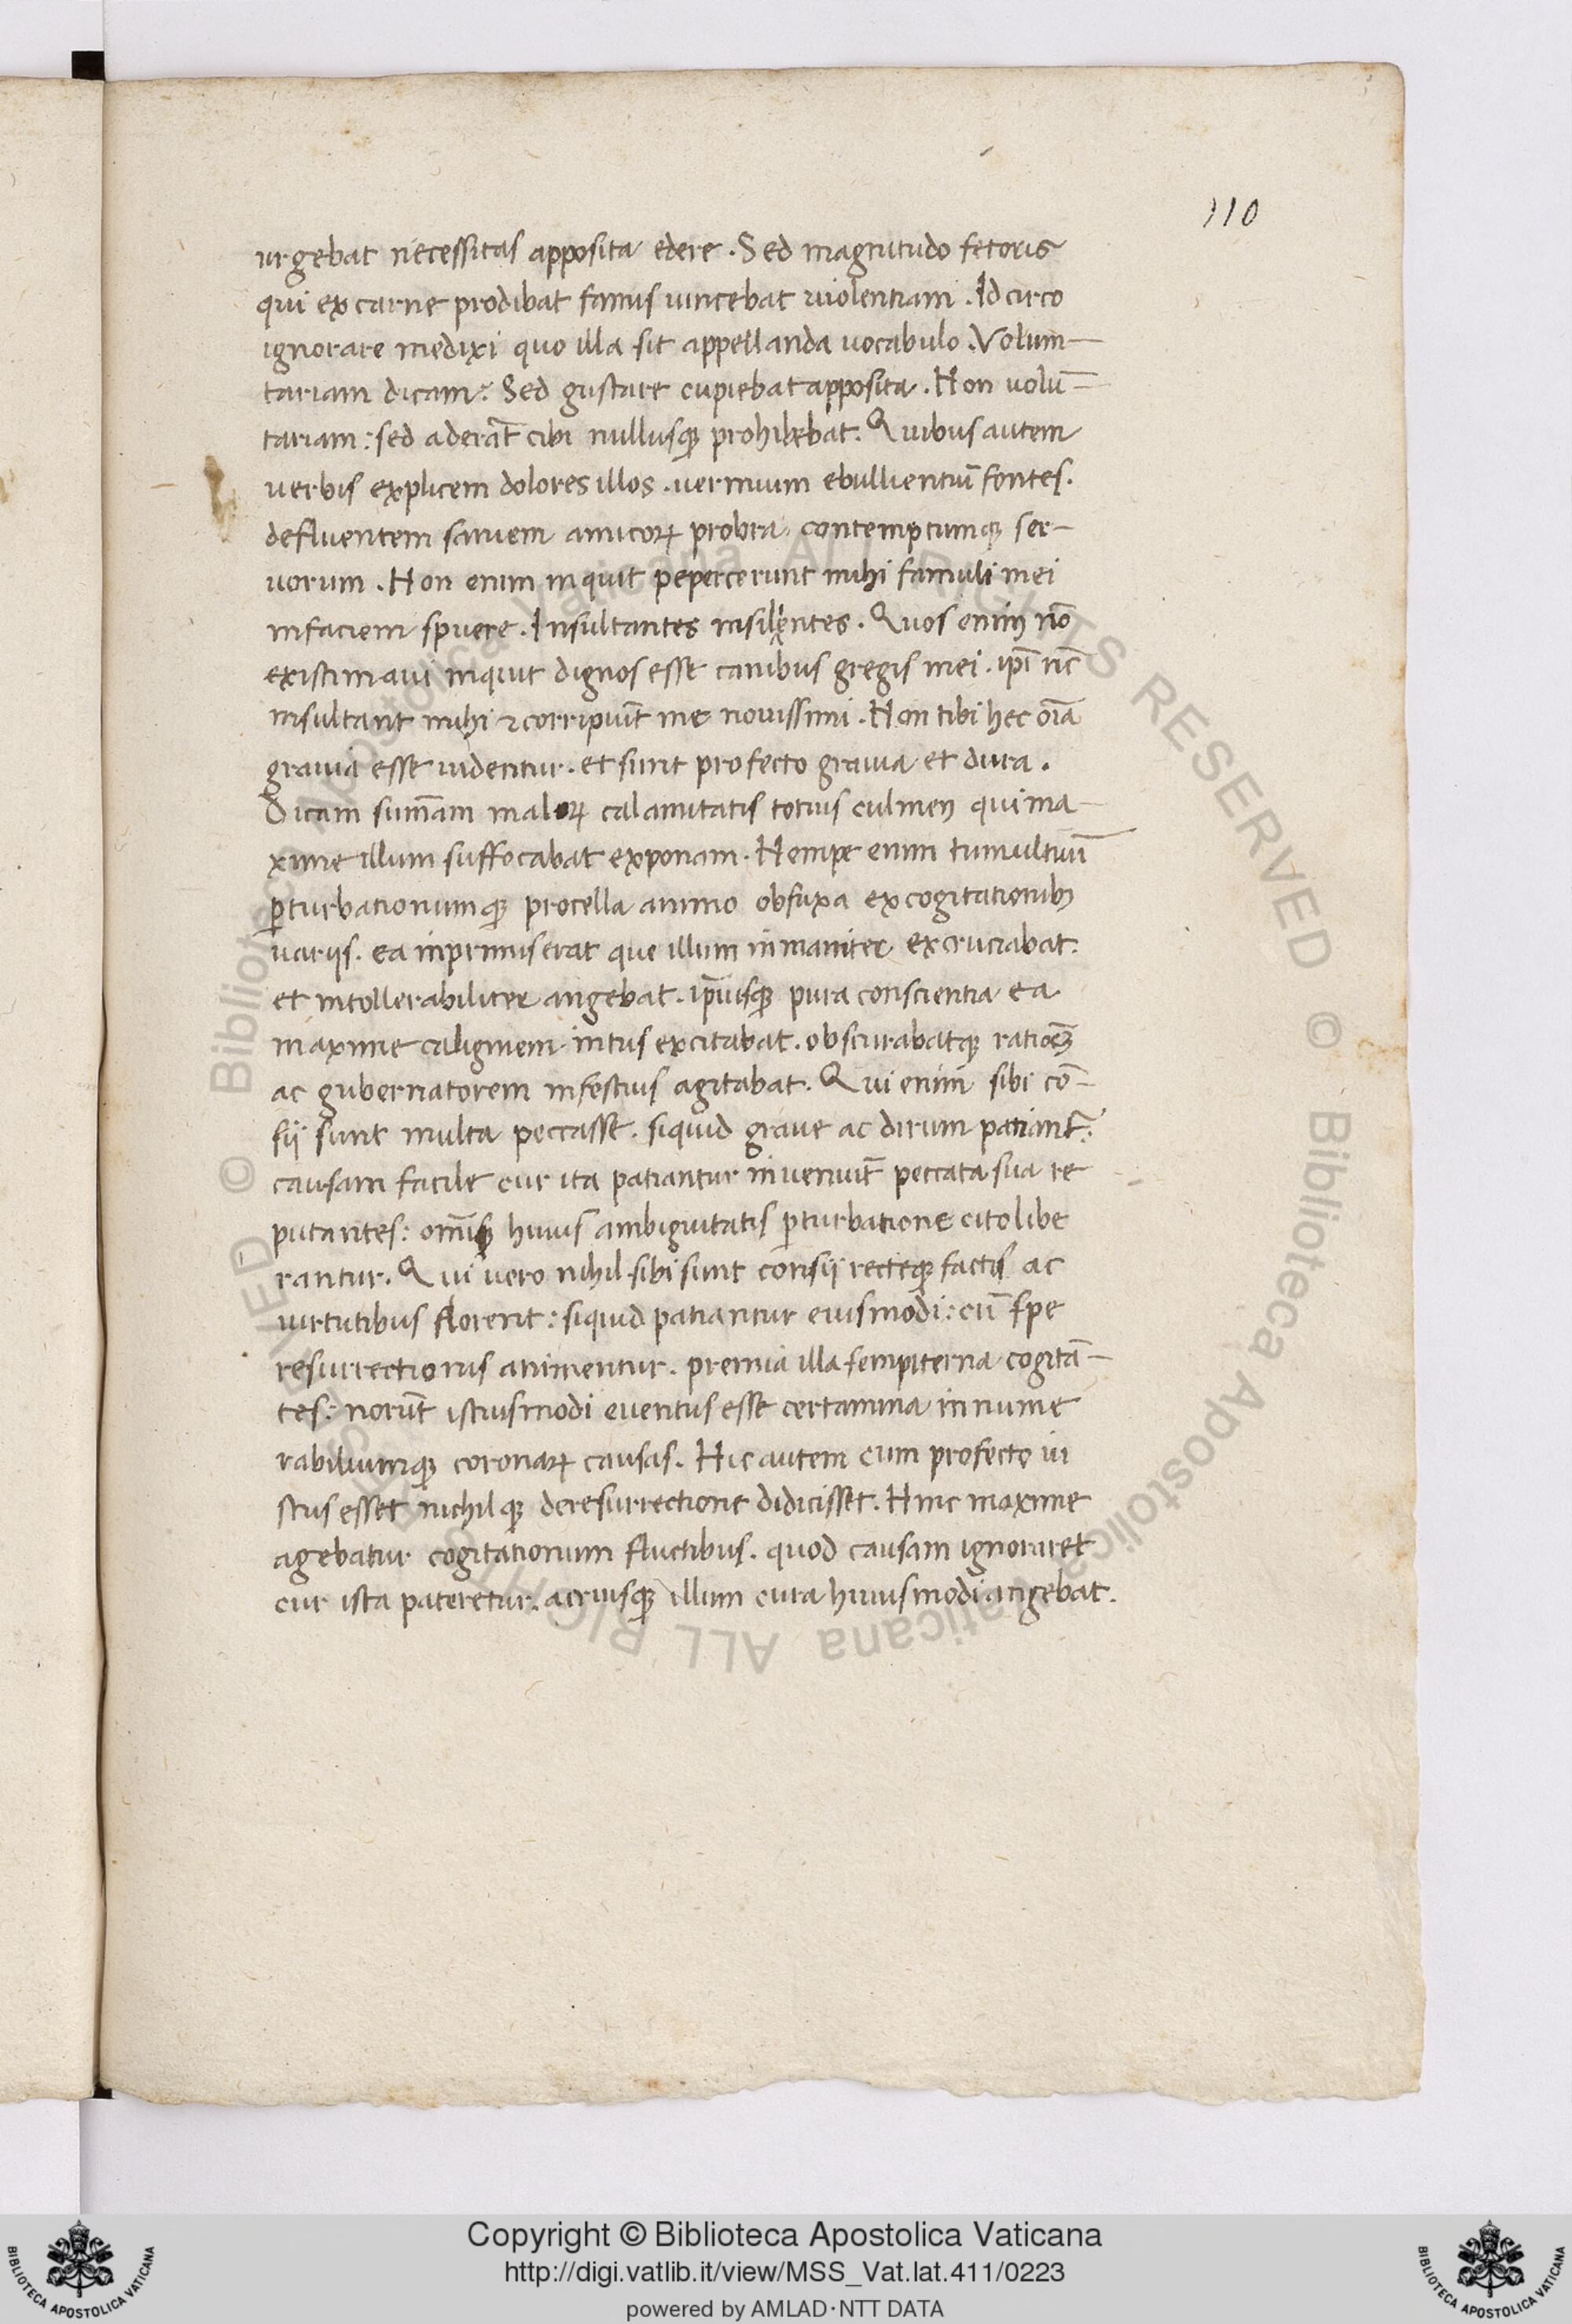 110
urgebat necessitas apposita edere. Sed magnitudo fetoris
qui ex carne prodibat famis uincebat uiolentiam. Idcirco
ignorare me dixi quo illa sit appellanda uocabulo. Volun-
tariam dicam? Sed gustare cupiebat apposita. Non volū-
tariam: sed aderāt cibi nullusqꝫ prohibebat. Quibus autem
uerbis explicem dolores illos. uermium ebullientiū fontes.
defluentem saniem amicoꝝ probra contemptumqꝫ ser-
uorum. Non enim inquit pepercerunt mihi famuli mei
in faciem spuere. Insultantes insilientes. Quos enim nō
existimaui inquit dignos esse canibus gregis mei. ip̄i nc̄
insultant mihi ⁊ corripiūt me nouissimi. Non tibi hec oīa
grauia esse uidentur. et sunt profecto grauia et dura.
Dicam sum̄am maloꝝ calamitatis totius culmen qui ma-
xime illum suffocabat exponam. Nempe enim tumultuū
ꝑturbationumqꝫ procella animo obfuxa ex cogitationibꝫ
uariis. ea inprimis erat que illum inmaniter excruciabat.
et intollerabiliter angebat. ip̄iusqꝫ pura conscientia ea
maxime caliginem intus excitabat. obscurabatqꝫ rationē
ac gubernatorem infestius agitabat. Qui enim sibi cō-
sii sunt multa peccasse. siquid graue ac dirum patiant᷑:
causam facile cur ita patiantur inueniūt peccata sua re
putantes: omīsqꝫ huius ambiguitatis ꝑturbatione cito libe
rantur. Qui uero nihil sibi sunt consii recteqꝫ factis ac
uirtutibus florent: siquid patiantur eiusmodi: cū spe
resurrectionis animentur. premia illa sempiterna cogitā-
tes: norūt istiusmodi euentus esse certamina innume
rabiliumqꝫ coronaꝝ causas. Hic autem cum profecto iu
stus esset nichilqꝫ de resurrectione didicisset. Hinc maxime
agebatur cogitationum fluctibus. quod causam ignoraret
cur ista pateretur. acriusqꝫ illum cura huiusmodi angebat.
Copyright © Biblioteca Apostolica Vaticana
http://digi.vatlib.it/view/MSS_Vat.lat.411/0223
powered by AMLAD·NTT DATA
BIBLIOTECA APOSTOLICA VATICANA
BIBLIOTECA APOSTOLICA VATICANA
© Biblioteca Apostolica Vaticana ALL RIGHTS RESERVED © Biblioteca Apostolica Vaticana ALL RIGHTS RESERVED